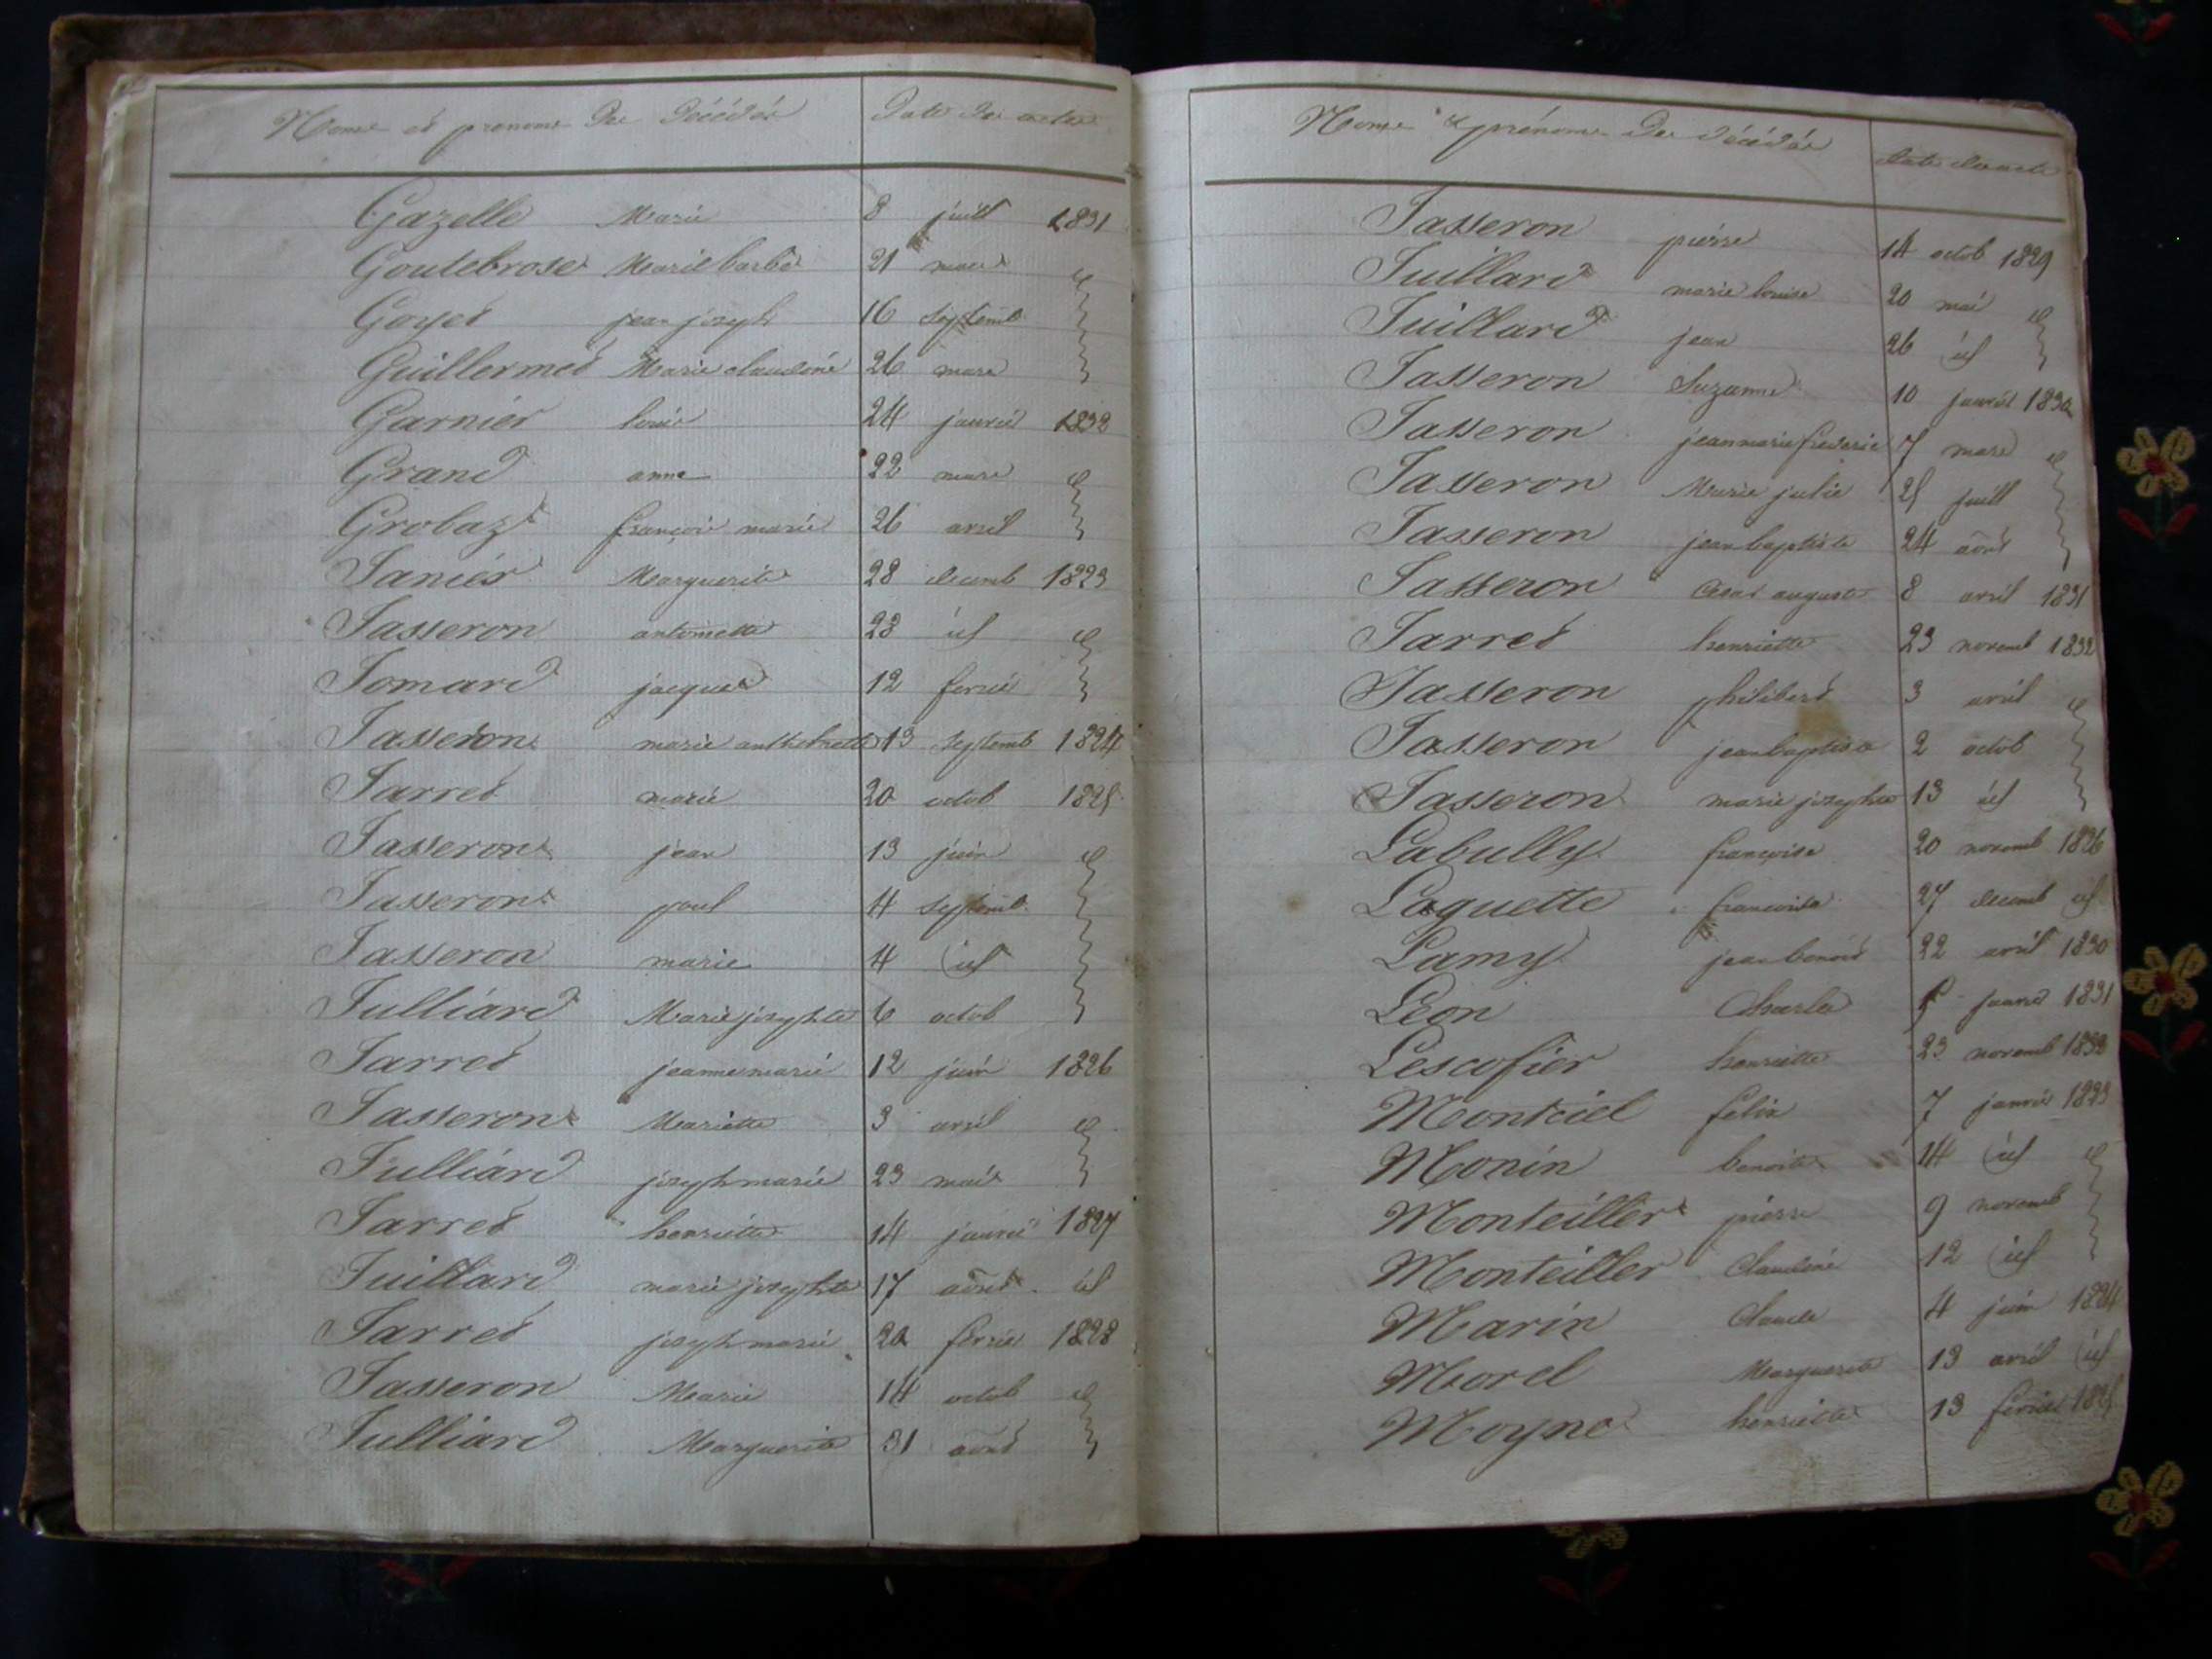 Noms et prénoms des Décédés Date des actes
Gazelle Marie 8 juill 1831
Goutebrose Marie barbe 21 mars
Goyet jean joseph 16 septemb
Guillermet Marie claudine 26 mars
Garnier louis 24 janvier 1832
Grand anne 22 mars
Grobaz françois marie 26 avril
Janier Marguerite 28 decemb 1823
Jasseron antoinette 23 id
Jomard jacques 12 fevrier
Jasseron marie anthelmette 13 septemb 1824
Jarret marie 20 octob 1825
Jasseron jean 13 juin
Jasseron paul 4 septemb
Jasseron marie 4 id
Julliard Marie josephte 6 octob
Jarret jeanne marie 12 juin 1826
Jasseron Mariette 3 avril
Julliard joseph marie 23 mai
Jarret henriette 14 janvier 1827
Juillard marie josephte 17 aout id
Jarret joseph marie 20 fevrier 1828
Jasseron Marie 14 octob
Julliard Marguerite 31 aout
Noms & prénoms des décédés date des actes
Jasseron pierre 14 octob 1829
Juillard marie louise 20 mai
Juillard jean 26 id
Jasseron Suzanne 10 janvier 1830
Jasseron jean marie frederic 7 mars
Jasseron Marie julie 25 juill
Jasseron jean baptiste 24 aout
Jasseron Cesar auguste 8 avril 1831
Jarret henriette 23 novemb 1832
Jasseron philibert 3 avril
Jasseron jean baptiste 2 octob
Jasseron marie josephte 13 id
Labully françoise 20 novemb 1826
Laquette françoise 27 decemb id
Lamy jean benoit 22 avril 1830
Leon Charles 5 janvier 1831
Lescofier henriette 23 novemb 1832
Montciel felix 7 janvier 1823
Monin benoite 14 id
Monteiller pierre 9 novemb
Monteiller Claudine 12 id
Marin Claude 4 juin 1824
Morel Marguerite 13 avril id
Moyne henriette 13 fevrier 1825